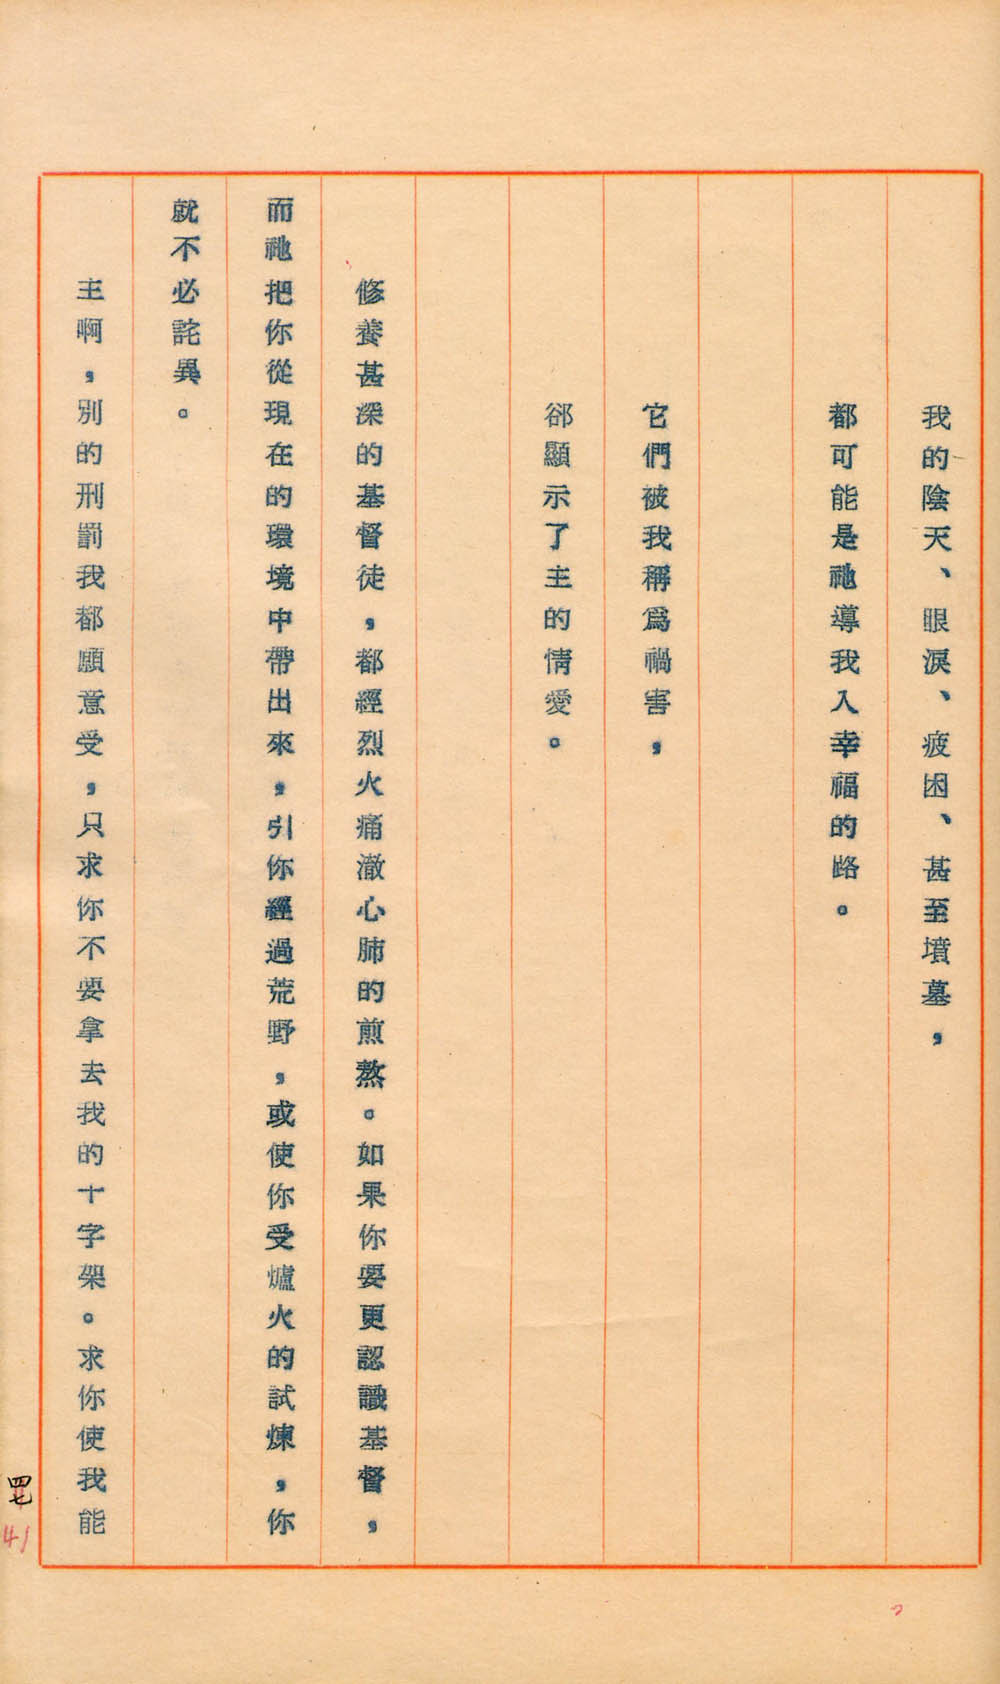 我的陰天、眼淚、疲困、甚至墳墓，
都可能是祂導我入幸福的路。
它們被我稱爲禍害，
郤顯示了主的情愛。
修養甚深的基督徒，都經烈火痛澈心肺的煎熬。如果你要更認識基督，
而祂把你從現在的環境中帶出來，引你經過荒野，或使你受爐火的試煉，你
就不必詫異。
主啊，別的刑罰我都願意受，只求你不要拿去我的十字架。求你使我能
四七
41